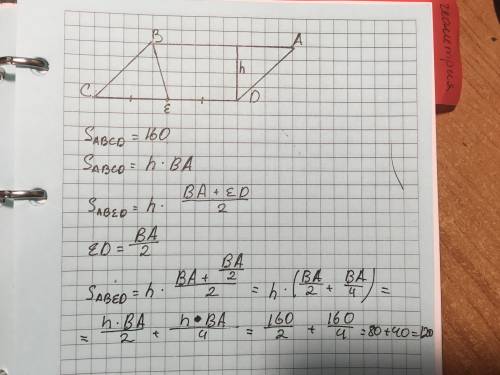 B A
h
C E D
S_ABCD = 160
S_ABCD = h · BA
S_ABED = h · (BA + ED)/2
ED = BA/2
S_ABED = h · (BA + BA/2)/2 = h · (BA/2 + BA/4) =
= h·BA/2 + h·BA/4 = 160/2 + 160/4 = 80+40=120